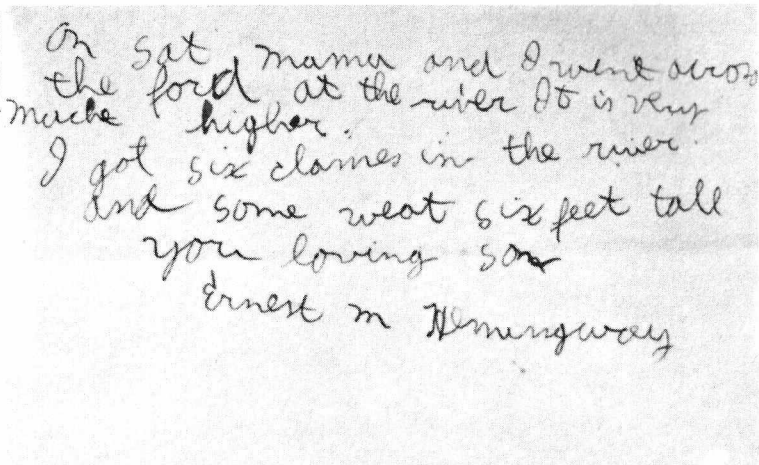 on Sat mama and I went across
the ford at the river It is very
muche higher.
I got six clames in the river.
and some weat six feet tall
you loving son
Ernest M Hemingway